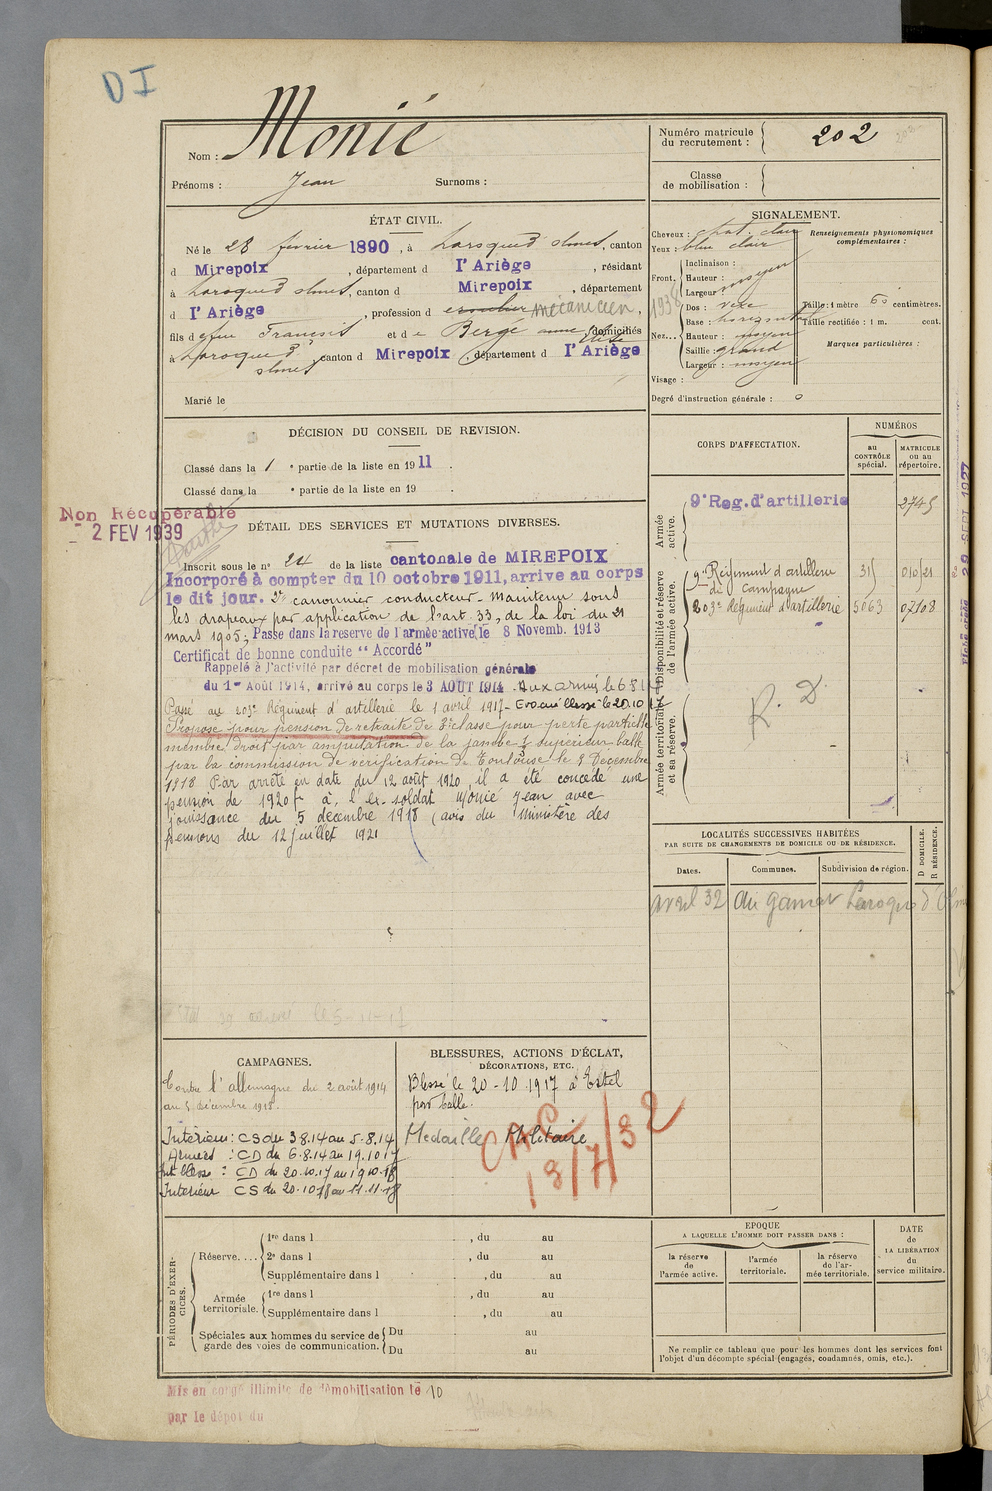 DI
Nom : Monié
Prénoms : Jean Surnoms :
Numéro matricule du recrutement : 202
Classe de mobilisation :
ÉTAT CIVIL.
Né le 28 février 1890, à Laroque d'olmes, canton
d Mirepoix, département d l'Ariège, résidant
à Laroque d'olmes, canton d Mirepoix, département
d l'Ariège, profession d mécanicien,
fils d e feu François et d e Berge Elise, domiciliés
à Laroque d'olmes, canton d Mirepoix, département d l'Ariège
Marié le
SIGNALEMENT.
Cheveux : chat. clair
Yeux : bleu clair
Front. Inclinaison :
Hauteur : moyen
Largeur :
Nez... Dos : vexe
Base : horizontal
Hauteur : moyen
Saillie : grand
Largeur : moyen
Visage :
Renseignements physionomiques complémentaires :
Taille : 1 mètre 60 centimètres.
Taille rectifiée : 1 m. cent.
Marques particulières :
Degré d'instruction générale :
DÉCISION DU CONSEIL DE REVISION.
Classé dans la 1 e partie de la liste en 1911.
Classé dans la e partie de la liste en 19 .
Non Récupérable
- 2 FEV 1939
DÉTAIL DES SERVICES ET MUTATIONS DIVERSES.
Inscrit sous le n° 24 de la liste cantonale de MIREPOIX
Incorporé à compter du 10 octobre 1911, arrive au corps
le dit jour. 2e canonnier conducteur. Maintenu sous
les drapeaux par application de l'art. 33, de la loi du 21
mars 1905; Passe dans la reserve de l'armée active, le 8 Novemb. 1913
Certificat de bonne conduite "Accordé"
Rappelé à l'activité par décret de mobilisation générale
du 1er Août 1914, arrivé au corps le 3 AOUT 1914. Aux armées le 6 8 14
Passé au 203e Régiment d'artillerie le 1 avril 1917 - Evacué blessé le 20 10 17
Proposé pour pension de retraite de 3e classe pour perte partielle
membre droit par amputation de la jambe supérieur balle
par la commission de vérification de Toulouse le 9 Décembre
1918 Par arrêté en date du 12 août 1920, il a été concédé une
pension de 1920 f à l'ex-soldat Monié Jean avec
jouissance du 5 décembre 1918 (avis du Ministère des
pensions du 12 juillet 1921
CORPS D'AFFECTATION.
NUMÉROS
au CONTRÔLE spécial.
MATRICULE ou au répertoire.
Armée active.
9e Reg. d'artillerie 2745
Disponibilité et réserve de l'armée active.
9e Régiment d'artillerie de Campagne 315 010/21
203e Régiment d'artillerie 5063 07108
Armée territoriale et sa réserve.
R. D.
LOCALITÉS SUCCESSIVES HABITÉES
PAR SUITE DE CHANGEMENTS DE DOMICILE OU DE RÉSIDENCE.
Dates. Communes. Subdivision de région. D DOMICILE. R RÉSIDENCE.
avril 32 Laroque d'Olmes
CAMPAGNES.
Contre l'allemagne du 2 août 1914
au 5 décembre 1918.
Intérieur : CS du 3.8.14 au 5.8.14
Armées : CD du 6.8.14 au 19.10.17
Int blessé : CD du 20.10.17 au 19.10.18
Intérieur CS du 20.10.18 au 11.11.18
BLESSURES, ACTIONS D'ÉCLAT, DÉCORATIONS, ETC.
Blessé le 20-10-1917 à
par balle.
Medaille Militaire
13/7/32
PÉRIODES D'EXERCICES.
Réserve.... 1re dans l , du au
2e dans l , du au
Supplémentaire dans l , du au
Armée territoriale. 1re dans l , du au
Supplémentaire dans l , du au
Spéciales aux hommes du service de garde des voies de communication. Du au
Du au
EPOQUE
A LAQUELLE L'HOMME DOIT PASSER DANS :
la réserve de l'armée active.
l'armée territoriale.
la réserve de l'armée territoriale.
DATE de LA LIBÉRATION du service militaire.
Ne remplir ce tableau que pour les hommes dont les services font
l'objet d'un décompte spécial (engagés, condamnés, omis, etc.).
Mis en congé illimité de démobilisation le 10
par le dépôt du